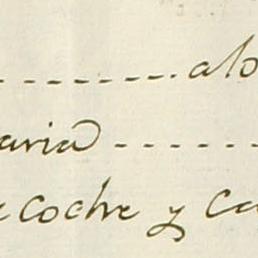 ---------- alo
aria -------
e coche y Ca